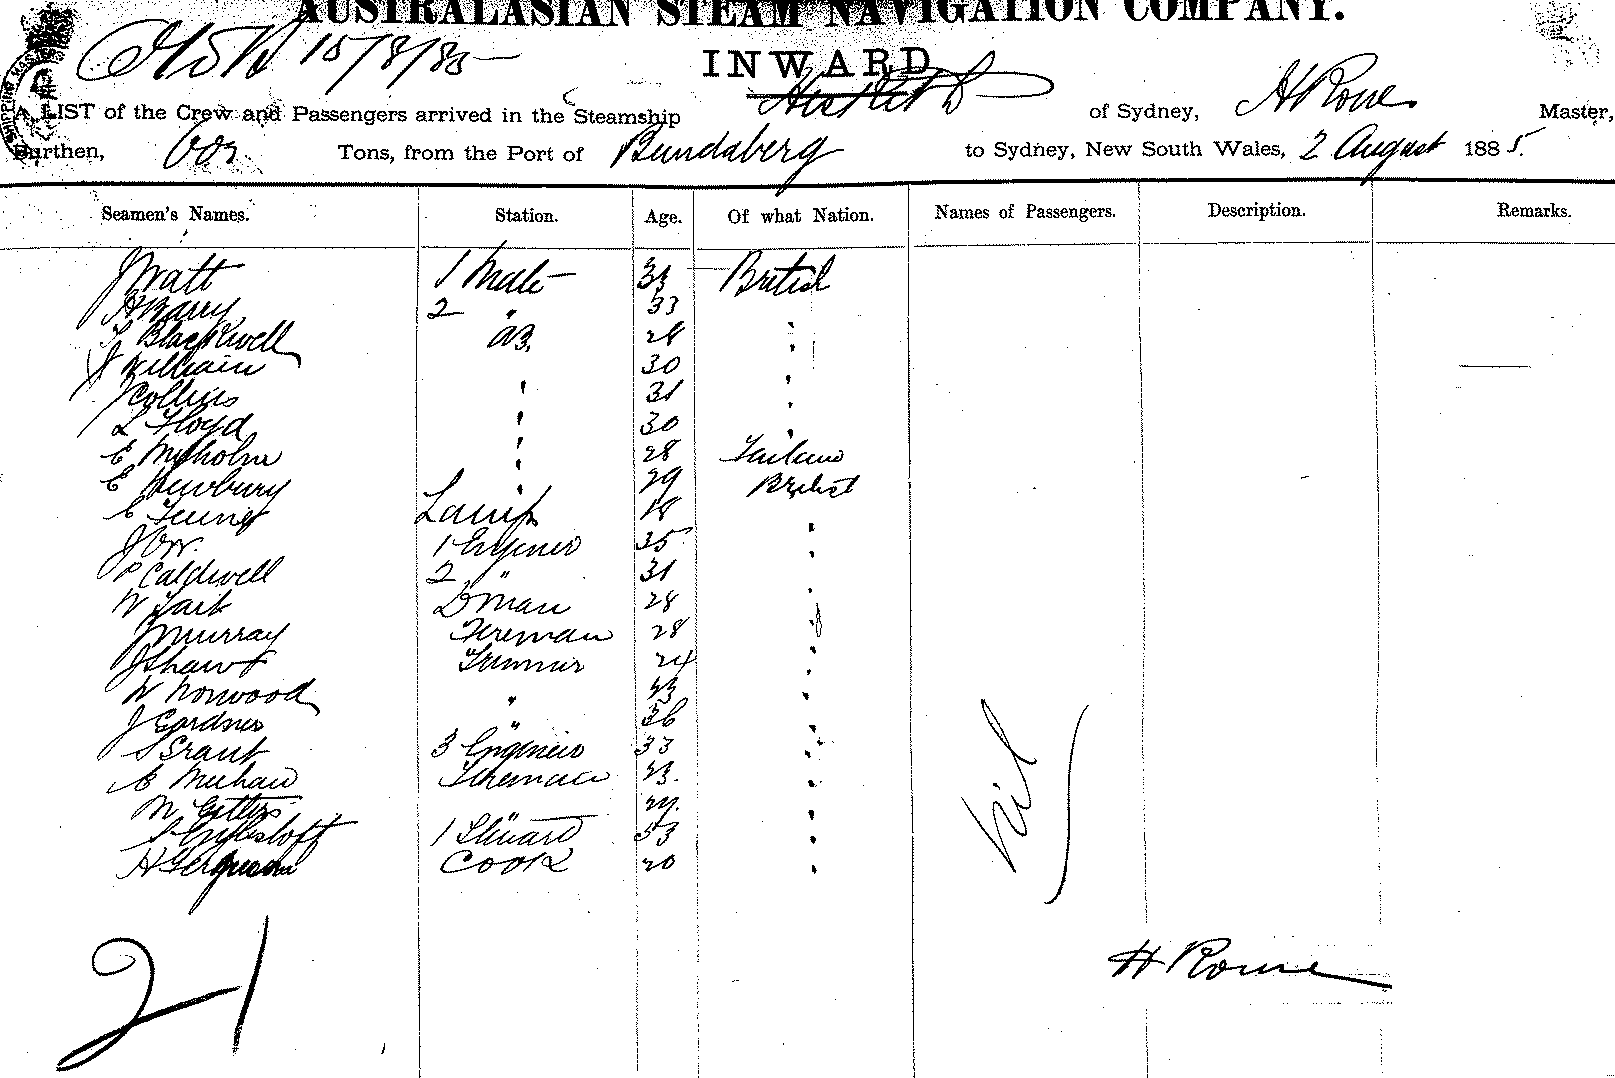 AUSTRALASIAN STEAM NAVIGATION COMPANY.
15/8/85
INWARD
A LIST of the Crew and Passengers arrived in the Steamship of Sydney, H Rowe Master,
Burthen, Tons, from the Port of Bundaberg to Sydney, New South Wales, 2 August 1885.
Seamen's Names. Station. Age. Of what Nation. Names of Passengers. Description. Remarks.
J Watt 1 Mate British
H Barry 2 " 33
Blackwell AB. 28 "
J William 30 "
J Collins " 31 "
L Floyd " 30 "
E " 28
E Newbury " 29 British
E Lamp 18 "
J Orr. 1 Engineer 35 "
P Caldwell 2 " 31 "
W Tait Dman 28 "
J Murray Fireman 28 "
J Shaw Trimmer 24 "
W Norwood " "
J Gardner " 36 "
S Grant 3 Engineer 33 "
E Meehan Fireman "
M "
1 Steward 53 "
H Ferguson Cook 20 "
nil
H Rowe
21